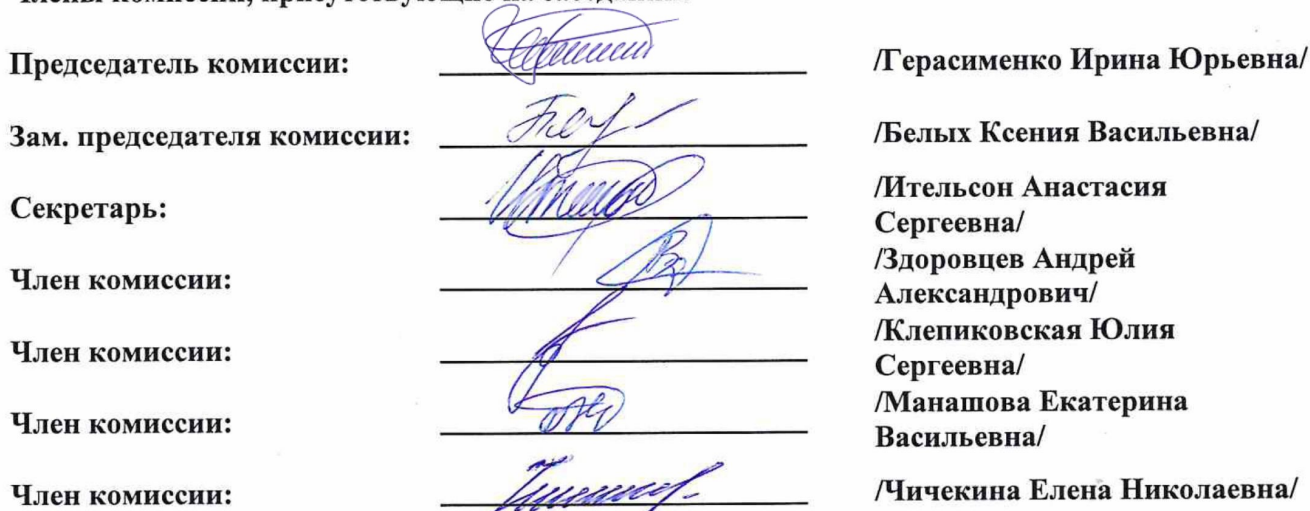 Председатель комиссии: /Герасименко Ирина Юрьевна/
Зам. председателя комиссии: /Белых Ксения Васильевна/
Секретарь: /Ительсон Анастасия
Сергеевна/
Член комиссии: /Здоровцев Андрей
Александрович/
Член комиссии: /Клепиковская Юлия
Сергеевна/
Член комиссии: /Манашова Екатерина
Васильевна/
Член комиссии: /Чичекина Елена Николаевна/